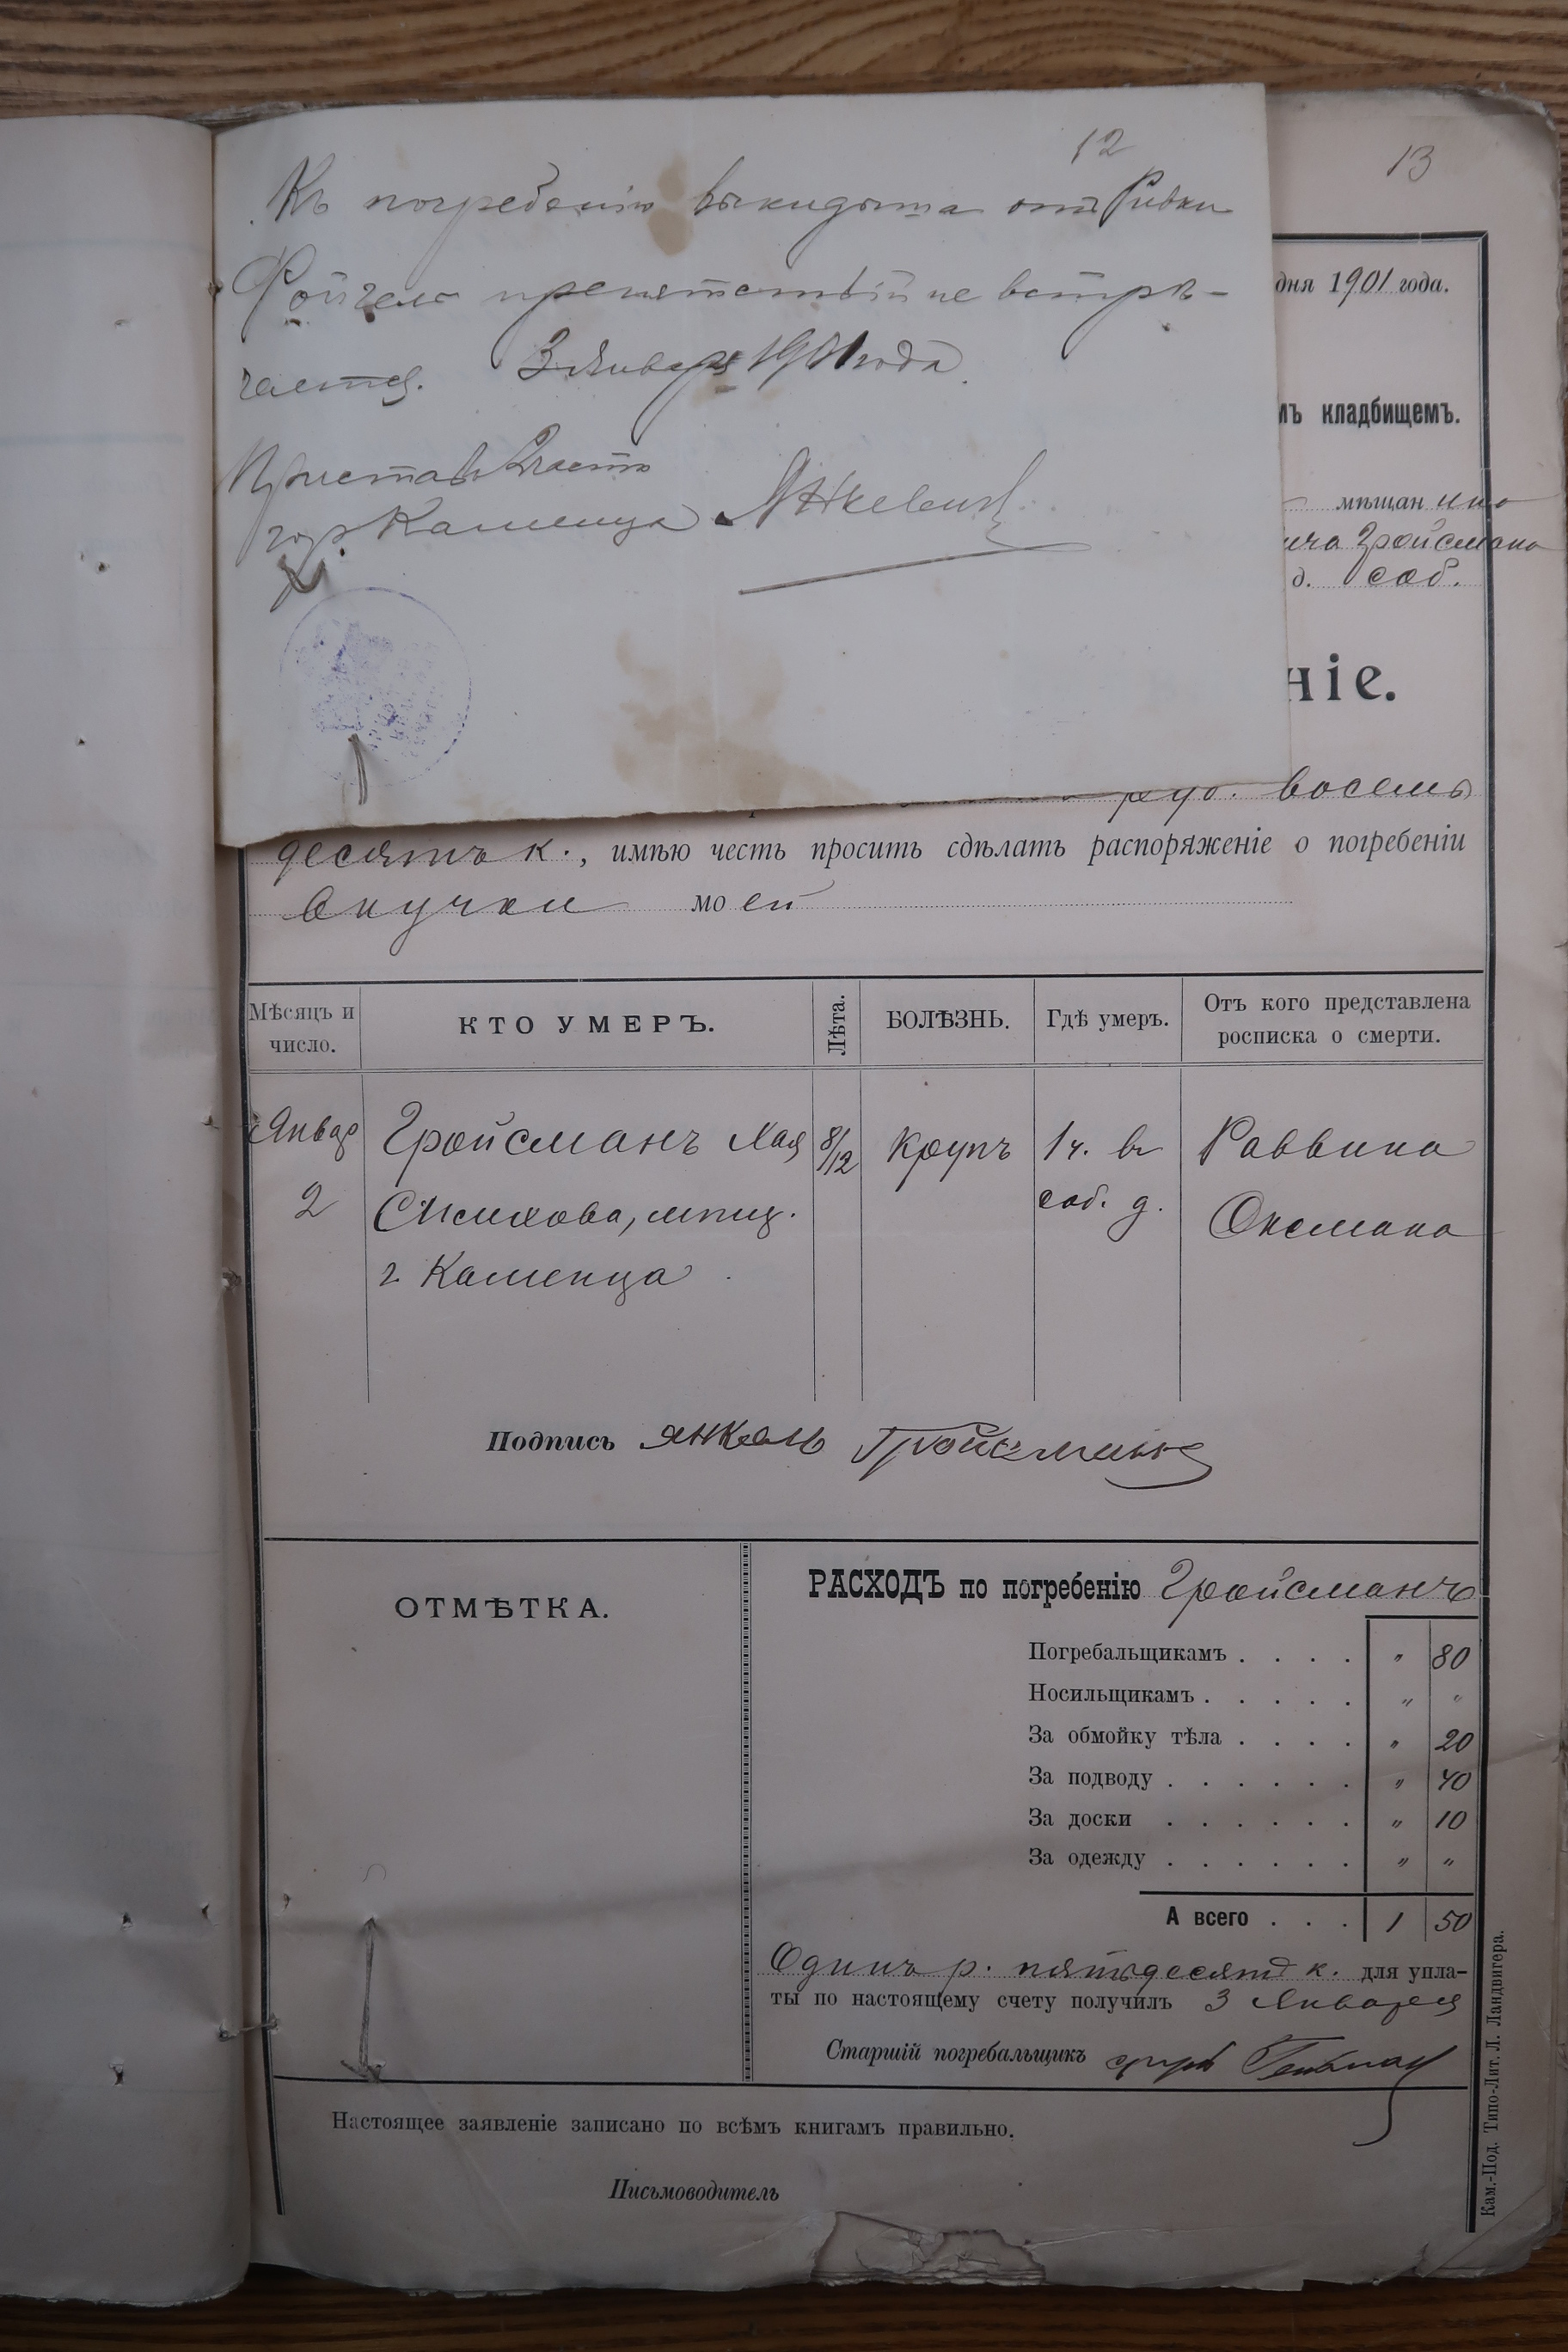 12
Къ погребенію выкидыша отъ Ривки
Фойгель препятствій не встрѣ-
чается. 3 Января 1901 года
Приставъ 2 части
гор. Каменца
13
дня 1901 года.
мъ кладбищемъ.
мѣщан ина
ича Гройсмана
д. соб.
ніе.
руб. восемь
десятъ к., имѣю честь просить сдѣлать распоряженіе о погребеніи
внучки моей
Мѣсяцъ и число.
КТО УМЕРЪ.
Лѣта.
БОЛѢЗНЬ.
Гдѣ умеръ.
Отъ кого представлена росписка о смерти.
Январ 2
Гройсманъ Хая
мѣщ.
г Каменца
8/12
Крупъ
1 ч. въ
соб. д.
Раввина
Оксмана
Подпись Янкель Гройсманъ
ОТМѢТКА.
РАСХОДЪ по погребенію Гройсманъ
Погребальщикамъ . . . . " 80
Носильщикамъ . . . . . " "
За обмойку тѣла . . . . " 20
За подводу . . . . . . " 40
За доски . . . . . . " 10
За одежду . . . . . . " "
А всего . . . 1 50
Одинъ р. пятьдесятъ к. для упла-
ты по настоящему счету получилъ 3 Января
Старшій погребальщикъ
Настоящее заявленіе записано по всѣмъ книгамъ правильно.
Письмоводитель
Кам.-Под. Типо-Лит. Л. Ландвигера.